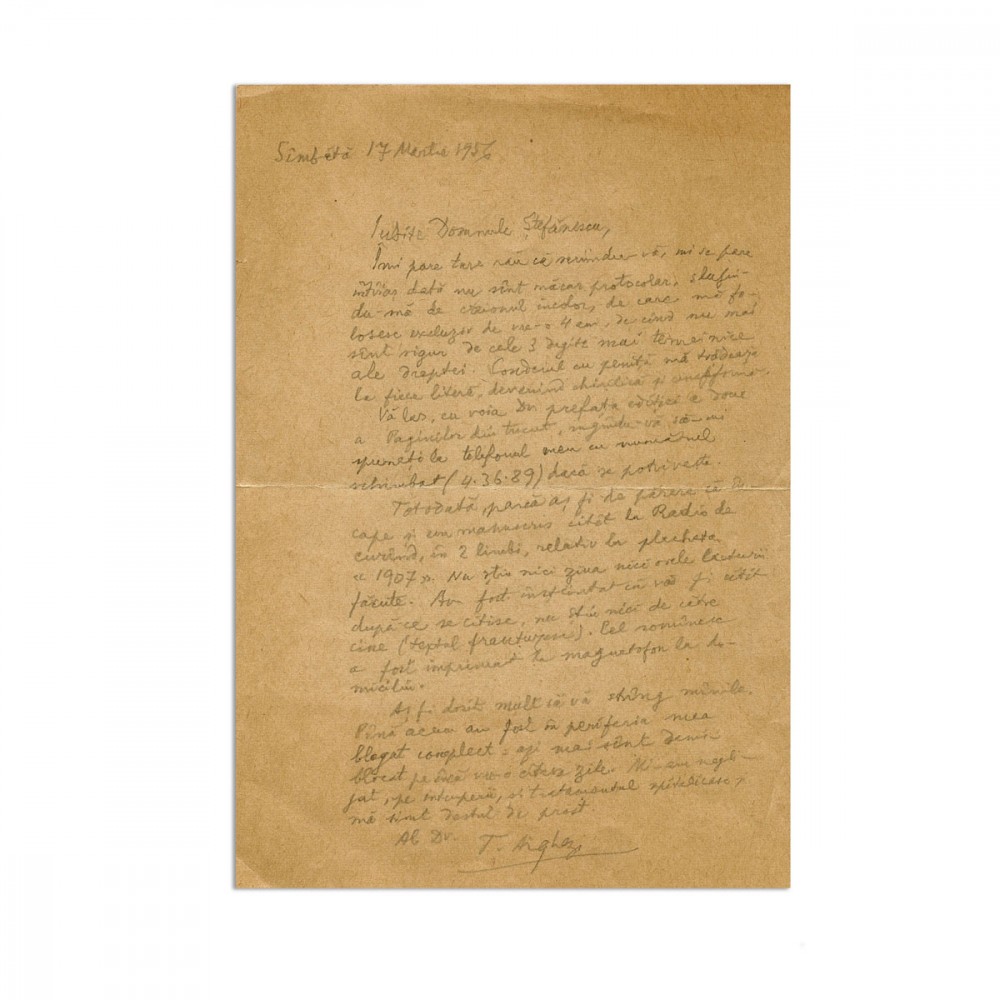 Sîmbătă 17 Martie 1956
Iubite Domnule Ștefănescu,
Îmi pare tare rău că scriindu-vă, mi se pare
dată nu sînt măcar protocolar, slujin-
du-mă de creionul incolor, de care mă fo-
losesc excluziv de vre-o 4 ani, de cînd nu mai
sînt sigur de cele 3 degite mai temeinice
ale dreptei. Condeiul cu peniță mă trădează
la fiece literă, devenind chirilică și
Vă las, cu voia Dv. prefața ediției a doua
a Paginilor din trecut, rugîndu-vă să-mi
spuneți la telefonul meu cu numărul
schimbat (4.36.89) dacă se potrivește.
Totodată, parcă aș fi de părere să în-
cape și un manuscris citit la Radio de
curînd, în 2 limbi, relativ la placheta
« 1907 ». Nu știu nici ziua nici orele lecturii
făcute. Am fost înștiințat că s-ar fi citit
după ce se citise, nu știu nici de către
cine (textul franțuzesc). Cel românesc
a fost imprimat la magnetofon la do-
miciliu.
Aș fi dorit mult să vă strîng mîinile.
Până acum am fost în periferia mea
blocat complect : azi mai sînt demi-
blocat pe încă vre-o cîteva zile. Mi-am negli-
jat, pe întreperă, și tratamentul
mă simt destul de prost
Al Dv. T. Arghezi